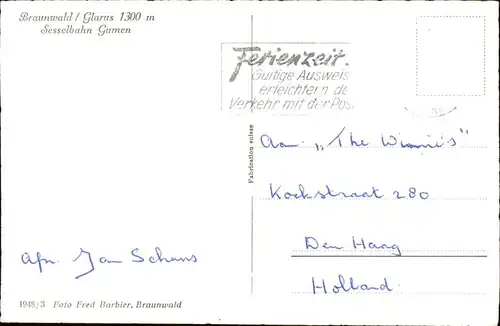 Braunwald / Glarus 1300 m
Sesselbahn Gumen
Ferienzeit.
Gültige Ausweis
erleichtern de
Verkehr mit der Pos
Fabrication suisse
Aan „The Winnie's"
Kockstraat 280
Den Haag
Holland
Afn. Jan Schans
1948/3 Foto Fred Barbier, Braunwald